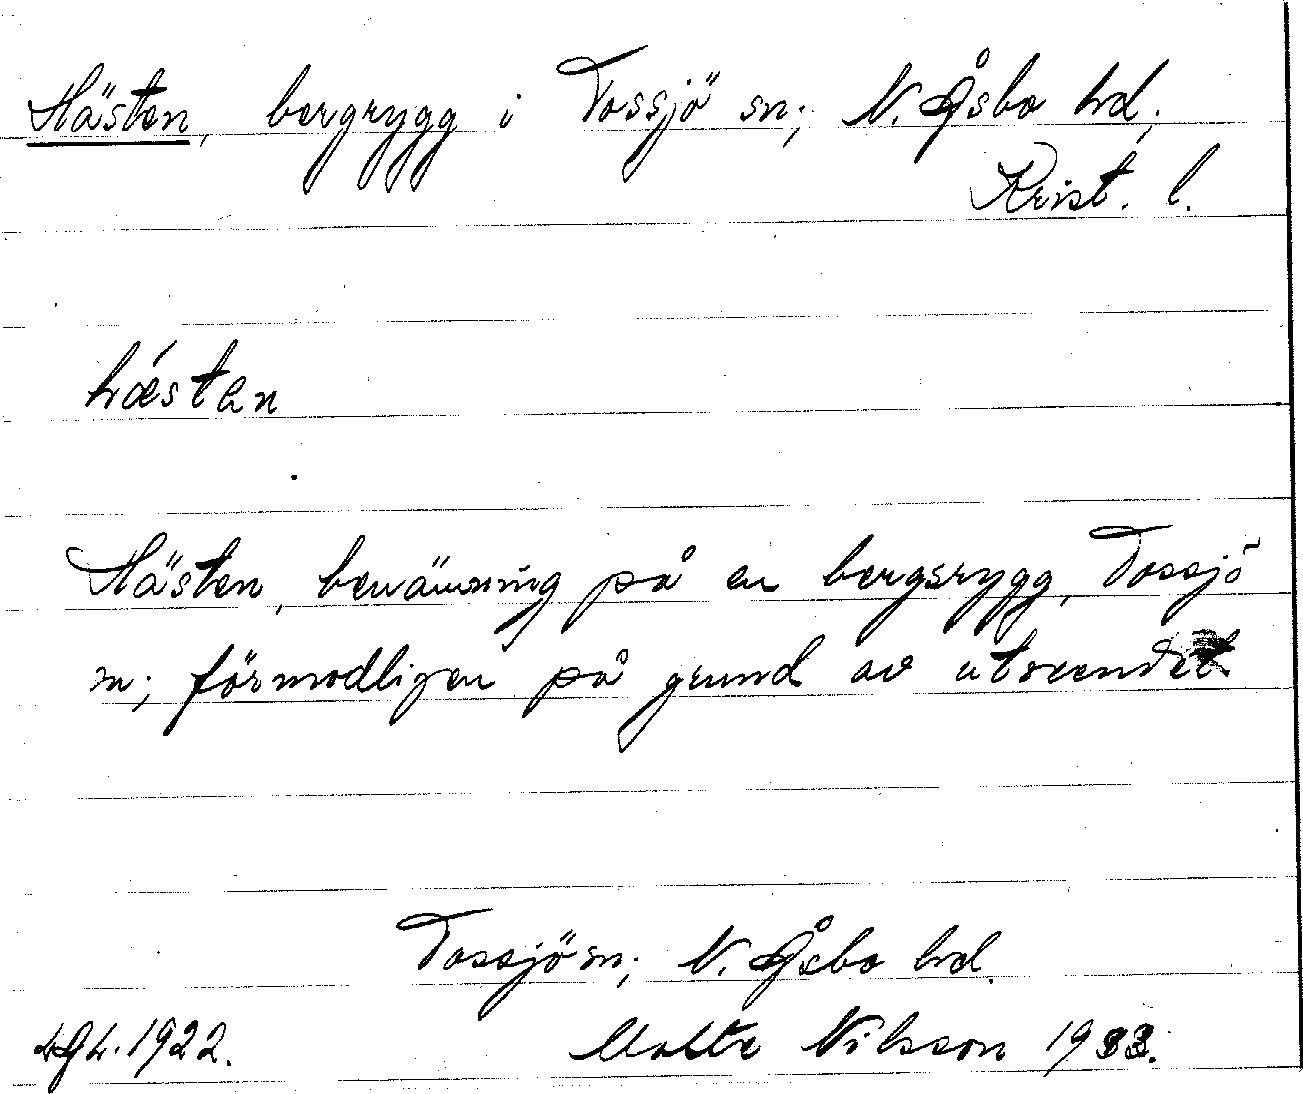 Hästen, bergrygg i Tossjö sn; N. Åsbo hd;
Krist. l.
hǽstan
Hästen, benämning på en bergsrygg, Tossjö
sn; förmodligen på grund av utseendet
Tossjö sn; N. Åsbo hd.
1922. Malte Nilsson 1933.